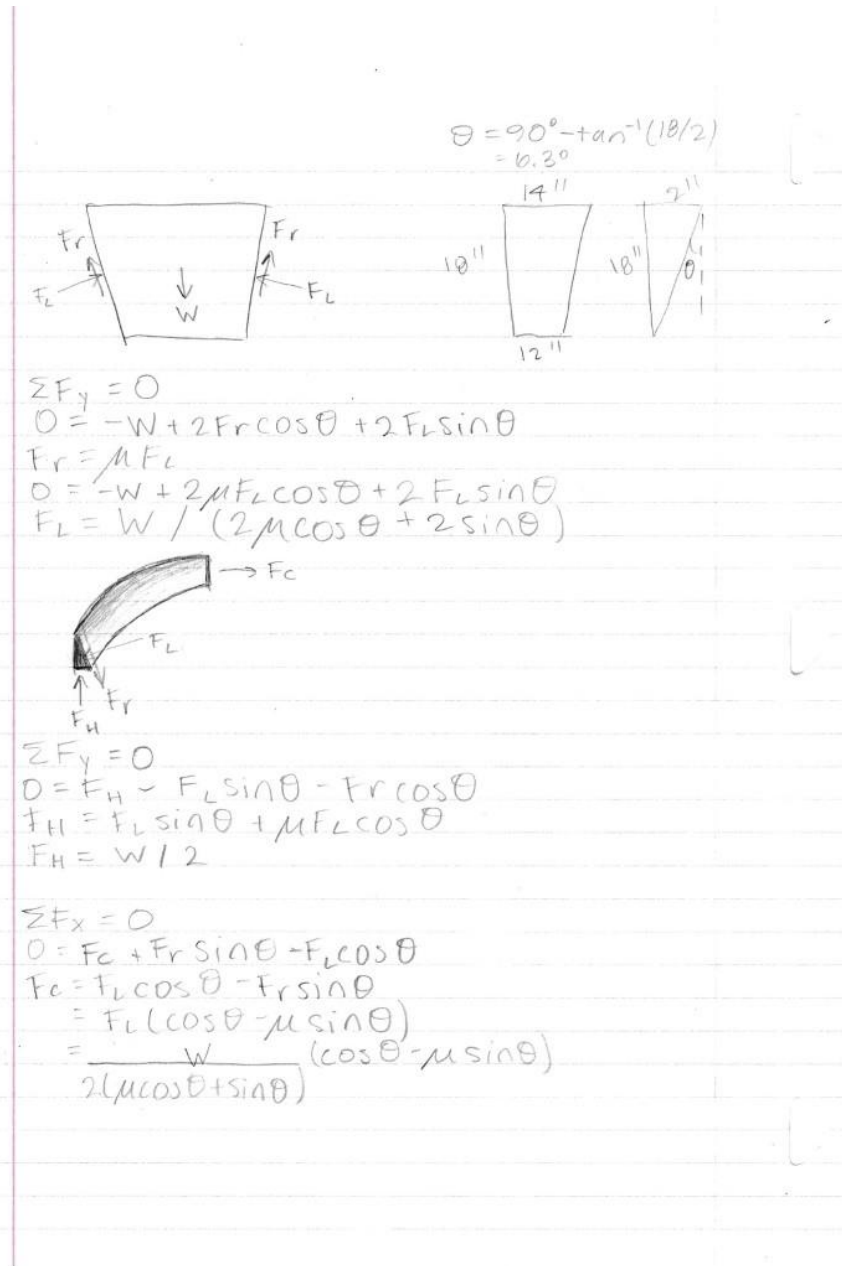 θ = 90° - tan⁻¹(18/2)
= 6.3°
14"
2"
Fr
Fr
18"
18"
θ
F_L
F_L
W
12"
ΣF_y = 0
0 = -W + 2Fr cosθ + 2F_L sinθ
Fr = μF_L
0 = -W + 2μF_L cosθ + 2F_L sinθ
F_L = W / (2μcosθ + 2sinθ)
→ Fc
F_L
Fr
F_H
ΣF_y = 0
0 = F_H - F_L sinθ - Fr cosθ
F_H = F_L sinθ + μF_L cosθ
F_H = W/2
ΣF_x = 0
0 = Fc + Fr sinθ - F_L cosθ
Fc = F_L cosθ - Fr sinθ
= F_L (cosθ - μ sinθ)
= W / 2(μcosθ + sinθ) (cosθ - μ sinθ)